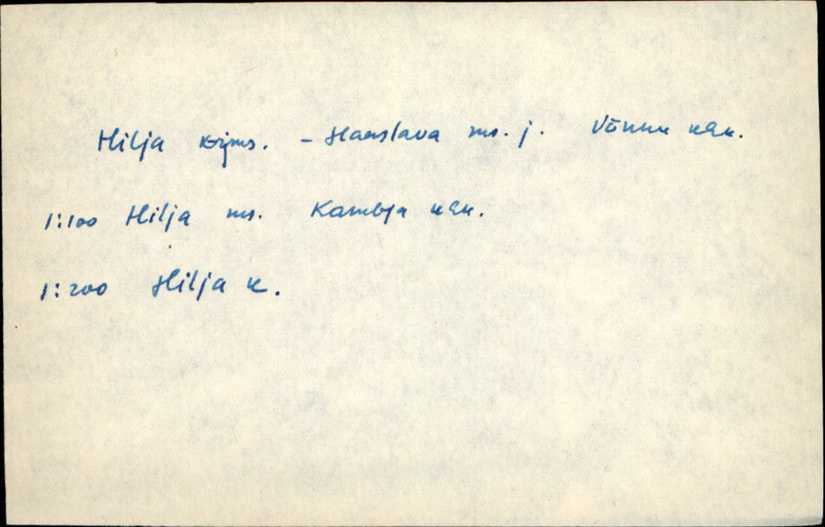 Hilja krjms. - Haaslava ms. j. Võnnu khk.
1:100 Hilja ms. Kambja khk.
1:200 Hilja k.